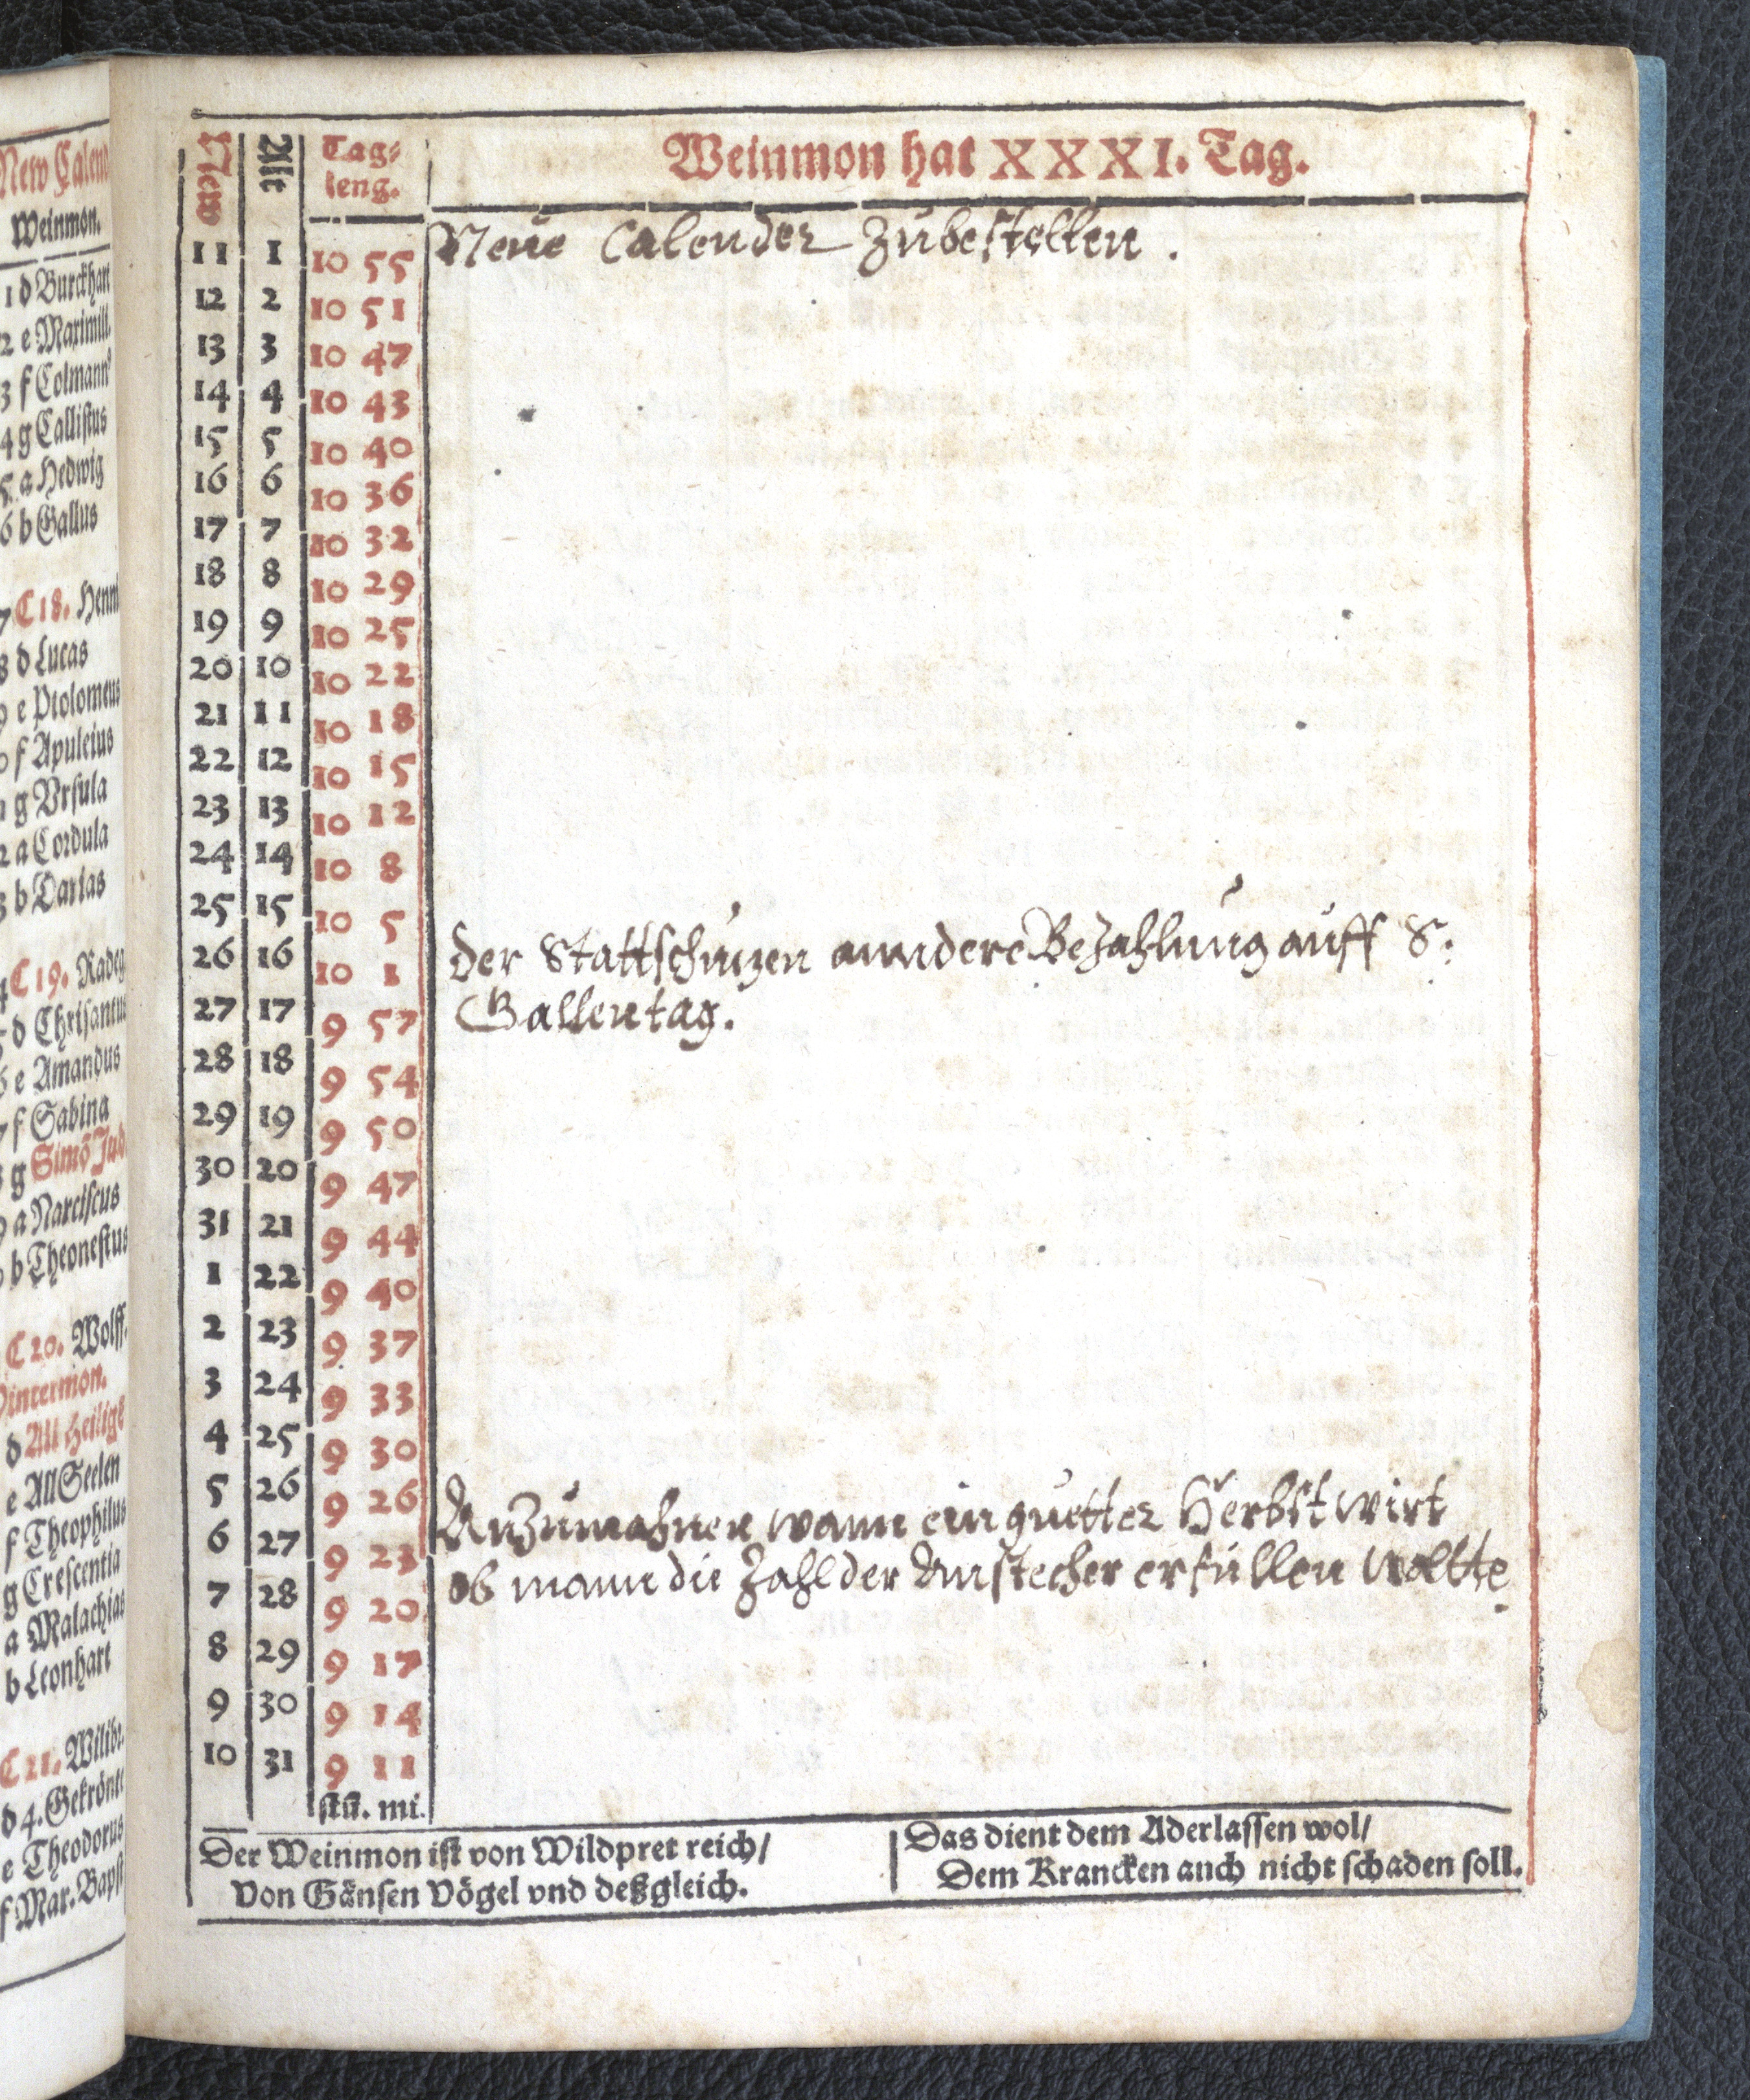 New Calend
Weinmon.
1 d Burckhart
2 e Maximill.
3 f Colmann⁹
4 g Callistus
5 a Hedwig
6 b Gallus
7 C 18. Henni
8 d Lucas
9 e Ptolomeus
0 f Apuleius
1 g Vrsula
2 a Cordula
3 b Darias
4 C 19. Radeg
5 d Chrisantus
6 e Amandus
7 f Sabina
8 g Simō Jud.
9 a Narciscus
0 b Theonestus
C 20. Wolff.
Wintermon.
d All Heilige
e All Seelen
f Theophilus
g Crescentia
a Malachias
b Leonhart
C 21. Wilibr.
d 4. Gekrönte
e Theodorus
f Mar. Bapst
New Alt Tag⸗
leng.
Weinmon hat XXXI. Tag.
11 1 10 55 Neue Calender Zubestellen.
12 2 10 51
13 3 10 47
14 4 10 43
15 5 10 40
16 6 10 36
17 7 10 32
18 8 10 29
19 9 10 25
20 10 10 22
21 11 10 18
22 12 10 15
23 13 10 12
24 14 10 8
25 15 10 5
26 16 10 1 Der Stattschuzen anndere Bezahlung auff S.
27 17 9 57 Gallentag.
28 18 9 54
29 19 9 50
30 20 9 47
31 21 9 44
1 22 9 40
2 23 9 37
3 24 9 33
4 25 9 30
5 26 9 26
6 27 9 23 Anzumahnen wann ein guetter Herbst wirt
7 28 9 20 ob mann die Zahl der Anstecher erfüllen woltte.
8 29 9 17
9 30 9 14
10 31 9 11
stū. mi.
Der Weinmon ist von Wildpret reich/
Von Gänsen Vögel vnd deßgleich.
Das dient dem Aderlassen wol/
Dem Krancken auch nicht schaden soll.